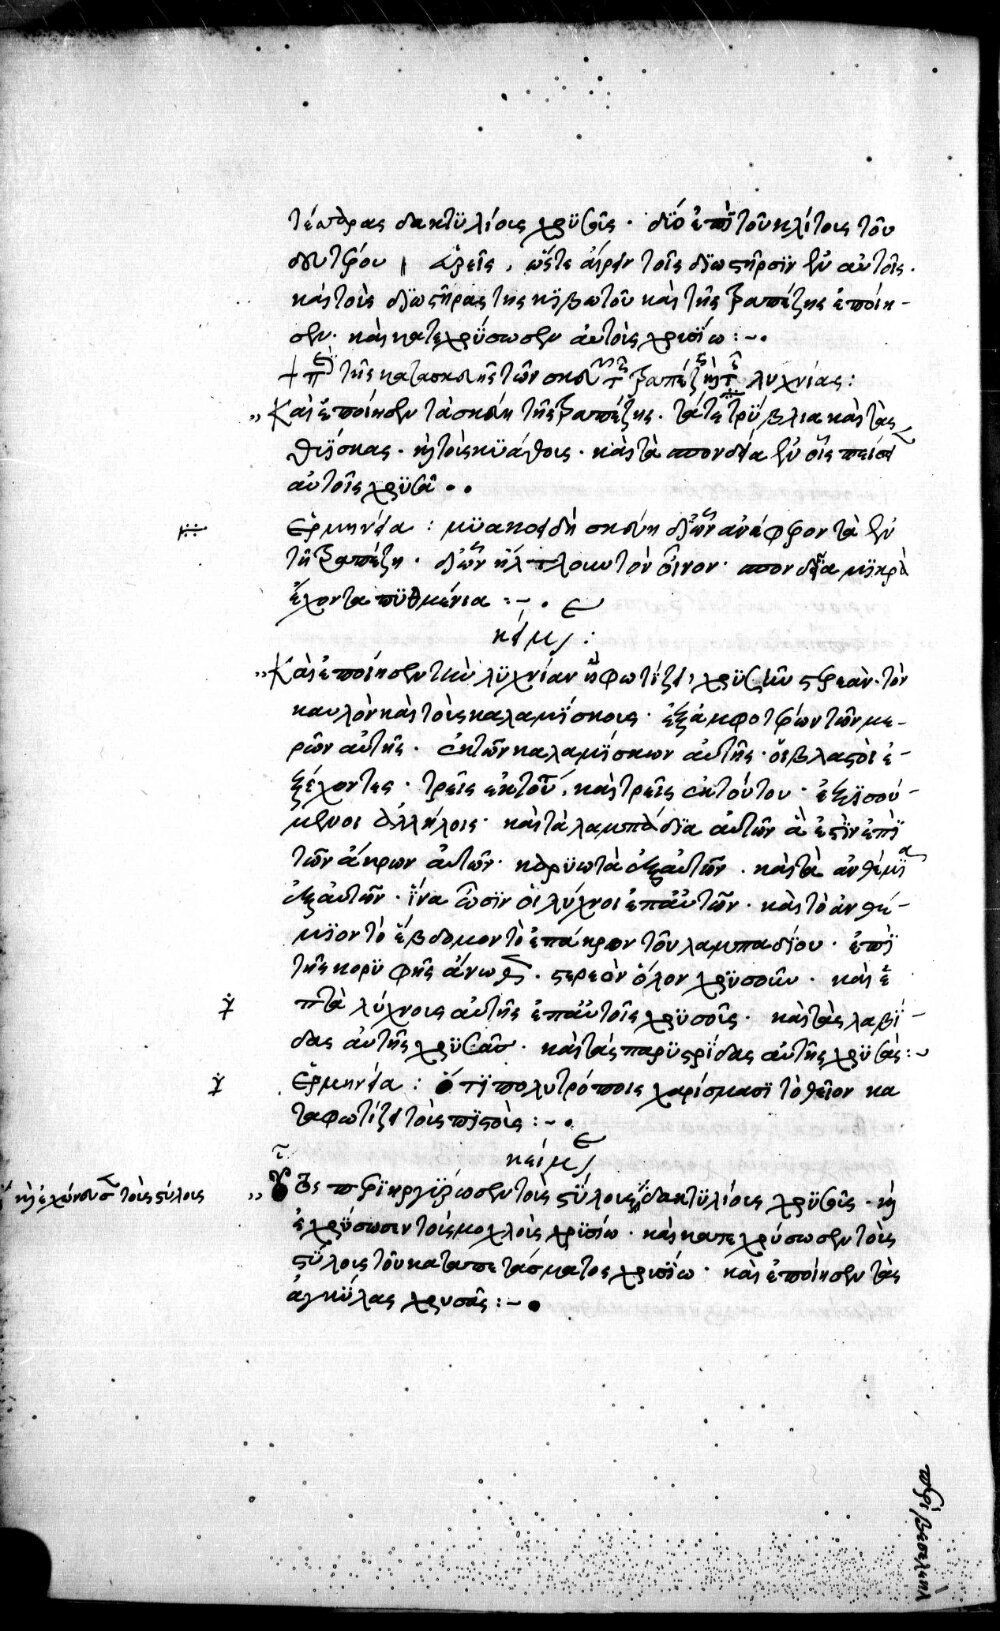 τέσσαρας δακτϋλίους χρϋσοῦς · δϋό ἐπὶ τοῦ κλίτους τοῦ
δευτέρου εὐρεῖς, ὥστε αἴρειν τοῖς διωστῆρσϊν ἐν αὐτοῖς.
καὶ τοὺς διωστῆρας τῆς κϊβωτοῦ καὶ τῆς τραπέζης ἐποίη-
σεν· καὶ κατεχρΰσωσεν αὐτοὺς χρυσίω :-.
τῆς κατασκευῆς τῶν σκευῶν τῆς τραπέζης καὶ τῆς λυχνίας:
„ Καὶ ἐποίησεν τὰ σκεύη τῆς τραπέζης· τάτε τρΰβλια καὶ τὰς
θϋΐσκας· καὶ τοὺς κϋάθους· καὶ τὰ σπονδεῖα ἐν οἷς σπείσει
αὐτοῖς χρϋσᾶ ..
Ἑρμηνεία : μϋακοειδῆ σκεύη δι' ὧν ἀνέφερον τὰ ἐν
τῆ τραπέζη· δι' ὧν ἤντλουν τὸν οἶνον· σπονδεῖα μϊκρὰ
ἔχοντα πϋθμένια :-.
κείμενον :
„ Καὶ ἐποίησεν τὴν λϋχνίαν ἣ φωτΐζει, χρϋσῆν στερεάν· τὸν
καυλὸν καὶ τοὺς καλαμΐσκους· ἐξ ἀμφοτέρων τῶν με-
ρῶν αὐτῆς· ἐκ τῶν καλαμΐσκων αὐτῆς· οἱ βλαστοὶ ἐ-
ξέχοντες· τρεῖς ἐκ τούτου, καὶ τρεῖς ἐκ τούτου· ἐξϊσού-
μενοι ἀλλήλοις· καὶ τὰ λαμπάδϊα αὐτῶν ἅ ἐστϊν ἐπΐ
τῶν ἄκρων αὐτῶν· καρϋωτὰ ἐξ αὐτῶν· καὶ τὰ ἀνθέμϊα
ἐξ αὐτῶν· ἵνα ὦσϊν οἱ λύχνοι ἐπ' αὐτῶν· καὶ τὸ ἀνθέ-
μϊον τὸ ἕβδομον τὸ ἐπ' ἄκρου τοῦ λαμπαδΐου· ἐπΐ
τῆς κορϋφῆς ἄνωθεν· στερεὸν ὅλον χρϋσοῦν· καὶ ἑ
πτὰ λύχνους αὐτῆς ἐπ' αὐτοῖς χρϋσοῦς· καὶ τὰς λαβΐ-
δας αὐτῆς χρϋσᾶς· καὶ τὰς παρϋστρΐδας αὐτῆς χρϋσᾶς:-
Ἑρμηνεία : ὅτϊ πολυτρόποις χαρίσμασϊ τὸ θεῖον κα
ταφωτίζει τοὺς πϊστοὺς :-.
κείμενον
„ Οὗτος περϊηργϋΐρωσεν τοὺς στΰλους δακτϋλίους χρϋσοῦς· καὶ
ἐχρϋσωσεν τοὺς μοχλοὺς χρϋσίω· καὶ κατεχρύσωσεν τοὺς
στΰλους τοῦ καταπετάσματος χρυσίω· καὶ ἐποίησεν τὰς
ἀγκΰλας χρυσᾶς :-.
καὶ ἐχώνευσε τοῖς στύλοις
περὶ βεσελεηλ